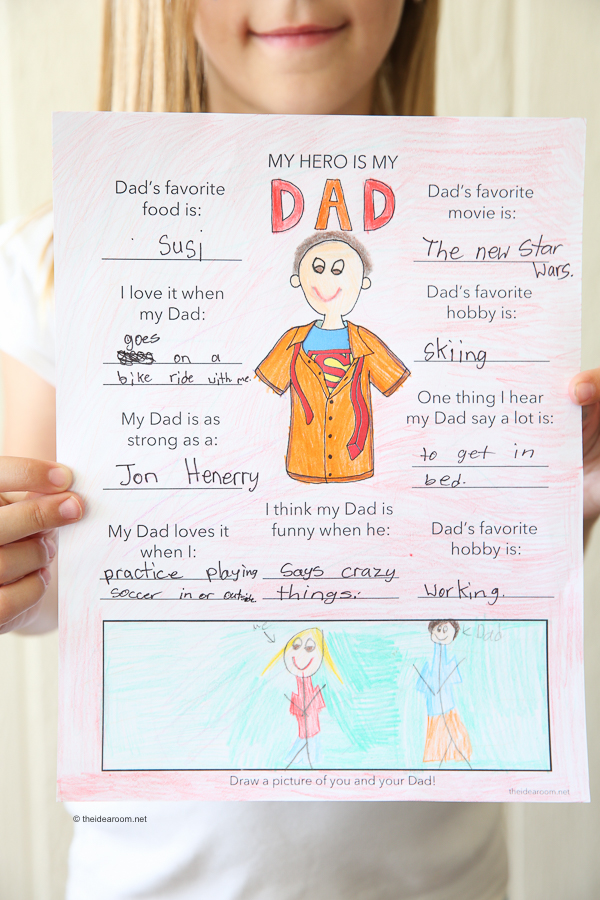 MY HERO IS MY
DAD
Dad's favorite
food is:
Susi
Dad's favorite
movie is:
The new Star
Wars.
I love it when
my Dad:
goes
on a
bike ride with me.
Dad's favorite
hobby is:
skiing
S
My Dad is as
strong as a:
Jon Henerry
One thing I hear
my Dad say a lot is:
to get in
bed.
My Dad loves it
when I:
practice playing
soccer in or outside.
I think my Dad is
funny when he:
Says crazy
things.
Dad's favorite
hobby is:
Working.
me
Dad
Draw a picture of you and your Dad!
theidearoom.net
© theidearoom.net